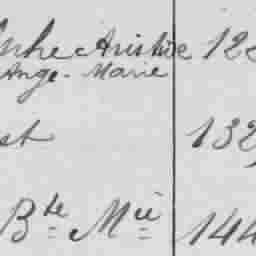 Aristide 12
Ange-Marie
st 132
Bte Mie 144